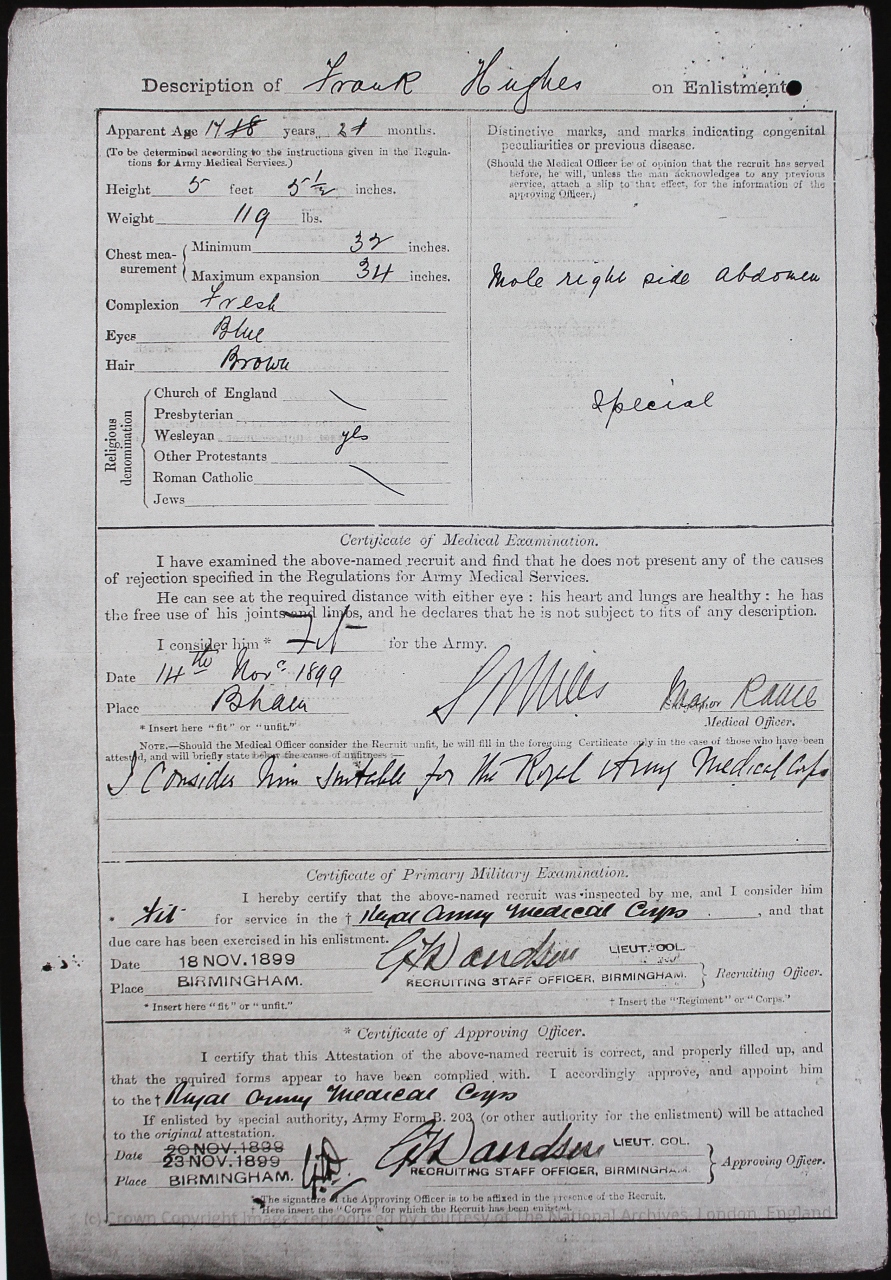 Description of Frank Hughes on Enlistment
Apparent Age 17 18 years 2 months.
(To be determined according to the instructions given in the Regula-
tions for Army Medical Services.)
Height 5 feet 5 1/2 inches.
Weight 119 lbs.
Chest mea-
surement
Minimum 32 inches.
Maximum expansion 34 inches.
Complexion Fresh
Eyes Blue
Hair Brown
Religious
denomination
Church of England
Presbyterian
Wesleyan yes
Other Protestants
Roman Catholic
Jews
Distinctive marks, and marks indicating congenital
peculiarities or previous disease.
(Should the Medical Officer be of opinion that the recruit has served
before, he will, unless the man acknowledges to any previous
service, attach a slip to that effect, for the information of the
approving Officer.)
Mole right side abdomen
Special
Certificate of Medical Examination.
I have examined the above-named recruit and find that he does not present any of the causes
of rejection specified in the Regulations for Army Medical Services.
He can see at the required distance with either eye: his heart and lungs are healthy: he has
the free use of his joints and limbs, and he declares that he is not subject to fits of any description.
I consider him * Fit for the Army.
Date 14th Novr 1899
Place Bham
Major RAMC
Medical Officer.
* Insert here "fit" or "unfit."
NOTE.—Should the Medical Officer consider the Recruit unfit, he will fill in the foregoing Certificate only in the case of those who have been
attested, and will briefly state below the cause of unfitness:—
I Consider him suitable for the Royal Army Medical Corps
Certificate of Primary Military Examination.
I hereby certify that the above-named recruit was inspected by me, and I consider him
* Fit for service in the † Royal Army Medical Corps, and that
due care has been exercised in his enlistment.
Date 18 NOV. 1899
LIEUT. COL.
Place BIRMINGHAM.
RECRUITING STAFF OFFICER, BIRMINGHAM. Recruiting Officer.
* Insert here "fit" or "unfit."
† Insert the "Regiment" or "Corps."
* Certificate of Approving Officer.
I certify that this Attestation of the above-named recruit is correct, and properly filled up, and
that the required forms appear to have been complied with. I accordingly approve, and appoint him
to the † Royal Army Medical Corps
If enlisted by special authority, Army Form B. 203 (or other authority for the enlistment) will be attached
to the original attestation.
Date 20 NOV. 1899
23 NOV. 1899
LIEUT. COL.
Place BIRMINGHAM.
RECRUITING STAFF OFFICER, BIRMINGHAM. Approving Officer.
* The signature of the Approving Officer is to be affixed in the presence of the Recruit.
† Here insert the "Corps" for which the Recruit has been enlisted.
(c) Crown Copyright Images reproduced by courtesy of The National Archives, London, England